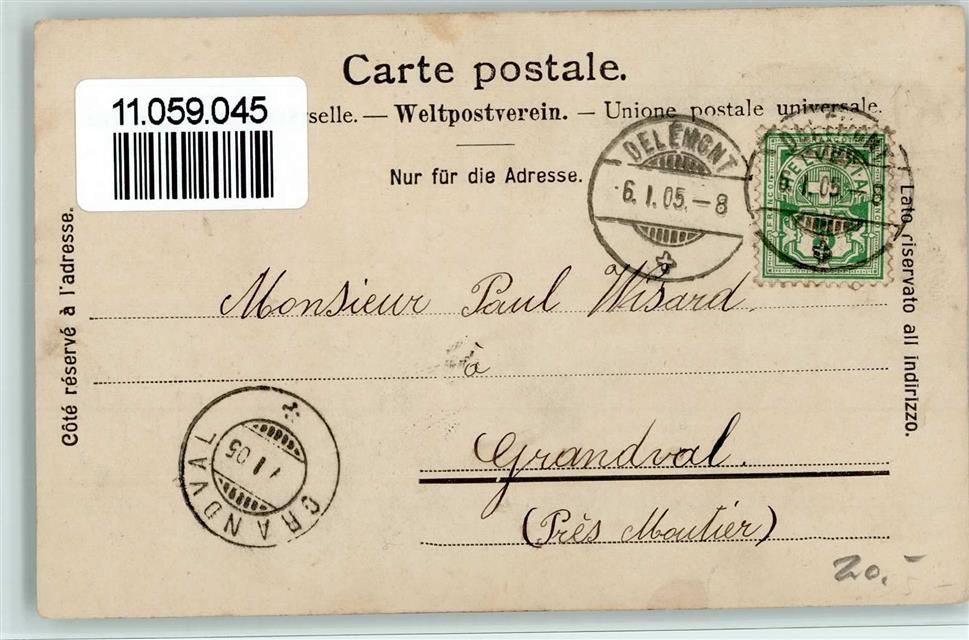 Carte postale.
11.059.045
rselle. — Weltpostverein. — Unione postale universale.
Nur für die Adresse.
DELÉMONT
6. I. 05. – 8
DELÉMONT
I. 05. – 8
HELVETIA
5
Côté réservé à l'adresse.
Lato riservato all indirizzo.
Monsieur Paul Wisard.
à
Grandval.
(Près Moutier)
GRANDVAL
I 05
20.-